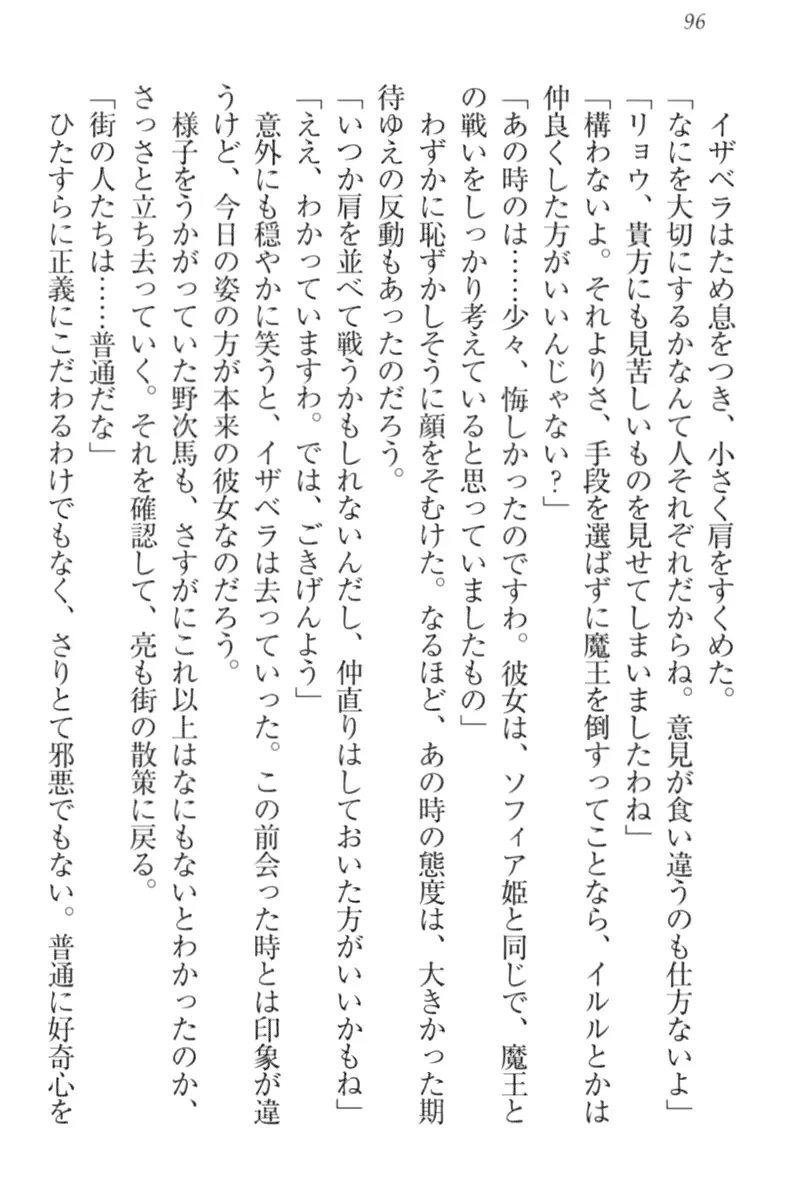 96
イザベラはため息をつき、小さく肩をすくめた。
「なにを大切にするかなんて人それぞれだからね。意見が食い違うのも仕方ないよ」
「リョウ、貴方にも見苦しいものを見せてしまいましたわね」
「構わないよ。それよりさ、手段を選ばずに魔王を倒すってことなら、イルルとかは
仲良くした方がいいんじゃない？」
「あの時のは……少々、悔しかったのですわ。彼女は、ソフィア姫と同じで、魔王と
の戦いをしっかり考えていると思っていましたもの」
わずかに恥ずかしそうに顔をそむけた。なるほど、あの時の態度は、大きかった期
待ゆえの反動もあったのだろう。
「いつか肩を並べて戦うかもしれないんだし、仲直りはしておいた方がいいかもね」
「ええ、わかっていますわ。では、ごきげんよう」
意外にも穏やかに笑うと、イザベラは去っていった。この前会った時とは印象が違
うけど、今日の姿の方が本来の彼女なのだろう。
様子をうかがっていた野次馬も、さすがにこれ以上はなにもないとわかったのか、
さっさと立ち去っていく。それを確認して、亮も街の散策に戻る。
「街の人たちは……普通だな」
ひたすらに正義にこだわるわけでもなく、さりとて邪悪でもない。普通に好奇心を